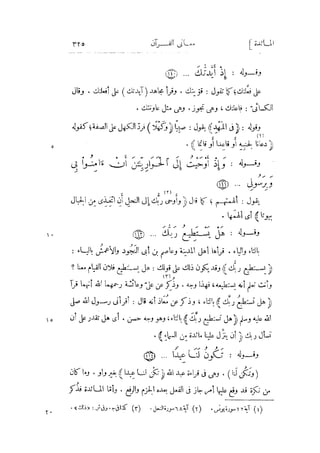 المائدة ] معانى القرآن ٣٢٥
وقوله : إِذْ أَيَّدتُّكَ ... ﴿١١٠﴾
على فعّلتك ؛ كما تقول : قوّيتك . وقرأ مجاهد ( آيدتك ) على أفعلتك . وقال
الكسائىّ : فاعلتك ، وهى تجوز . وهى مثل عاونتك .
وقوله : ﴿ فى المهد ﴾ يقول : صبيّا ﴿ وكهلا ﴾ فردّ الكهل على الصفة ؛ كقوله
﴿ دعانا لجنبه أو قاعدا أو قائما ﴾ (١) .
وقوله : وَإِذْ أَوْحَيْتُ إِلَى ٱلْحَوَارِيِّـۧنَ أَنْ ءَامِنُوا۟ بِى
وَبِرَسُولِى ... ﴿١١١﴾
يقول : ألهمتهم ؛ كما قال ﴿ وأوحى ربك إلى النحل أن اتخذى من الجبال (٢)
بيوتا ﴾ أى ألهمها .
وقوله : هَلْ يَسْتَطِيعُ رَبُّكَ ... ﴿١١٢﴾ ١٠
بالتاء والياء . قرأها أهل المدينة وعاصم بن أبى النَّجُود والأعمش بالياء :
﴿ يستطيع ربك ﴾ وقد يكون ذلك على قولك : هل يستطيع فلان القيام معنا ؟
وأنت تعلم أنه يستطيعه ، فهذا وجه . وذُكر عن علىّ وعائشة رحمهما الله أنهما قرآ (٣)
﴿ هل تستطيع ربك ﴾ بالتاء ، وذكر عن معاذ أنه قال : أقرأنى رسول الله صلى
الله عليه وسلم ﴿ هل تستطيع ربك ﴾ بالتاء ، وهو وجه حسن . أى هل تقدر على أن ١٥
تسأل ربك ﴿ أن ينزل علينا مائدة من السماء ﴾ .
وقوله : تَكُونُ لَنَا عِيدًا ... ﴿١١٤﴾
( وتكن لنا ) . وهى فى قراءة عبد الله ﴿ تكن لنا عيدا ﴾ بغير واو . وما كان
من نكرة قد وقع عليها أمر جاز فى الفعل بعده الجزم والرفع . وأمّا المائدة فذُكر
(١) آية ١٢ سورة يونس . (٢) آية ٦٨ سورة النحل . (٣) ٢٠